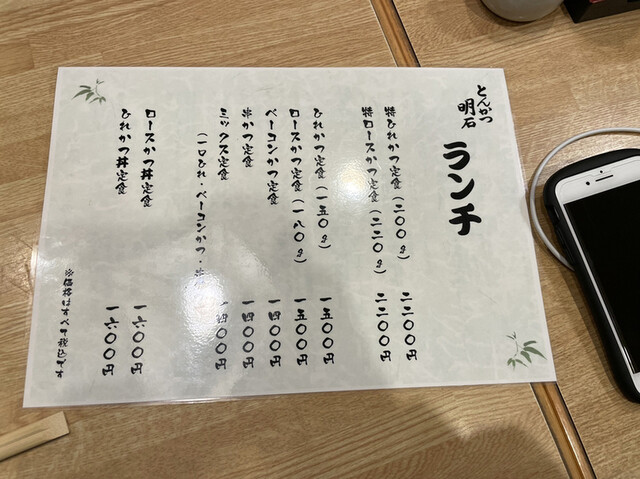 とんかつ
明石
ランチ
特ひれかつ定食(二〇〇g) 二二〇〇円
特ロースかつ定食(二二〇g) 二二〇〇円
ひれかつ定食(一五〇g) 一五〇〇円
ロースかつ定食(一八〇g) 一五〇〇円
ベーコンかつ定食 一四〇〇円
串かつ定食 一四〇〇円
ミックス定食 一四〇〇円
(一口ひれ・ベーコンかつ・串
ロースかつ丼定食 一六〇〇円
ひれかつ丼定食 一六〇〇円
※価格はすべて税込です